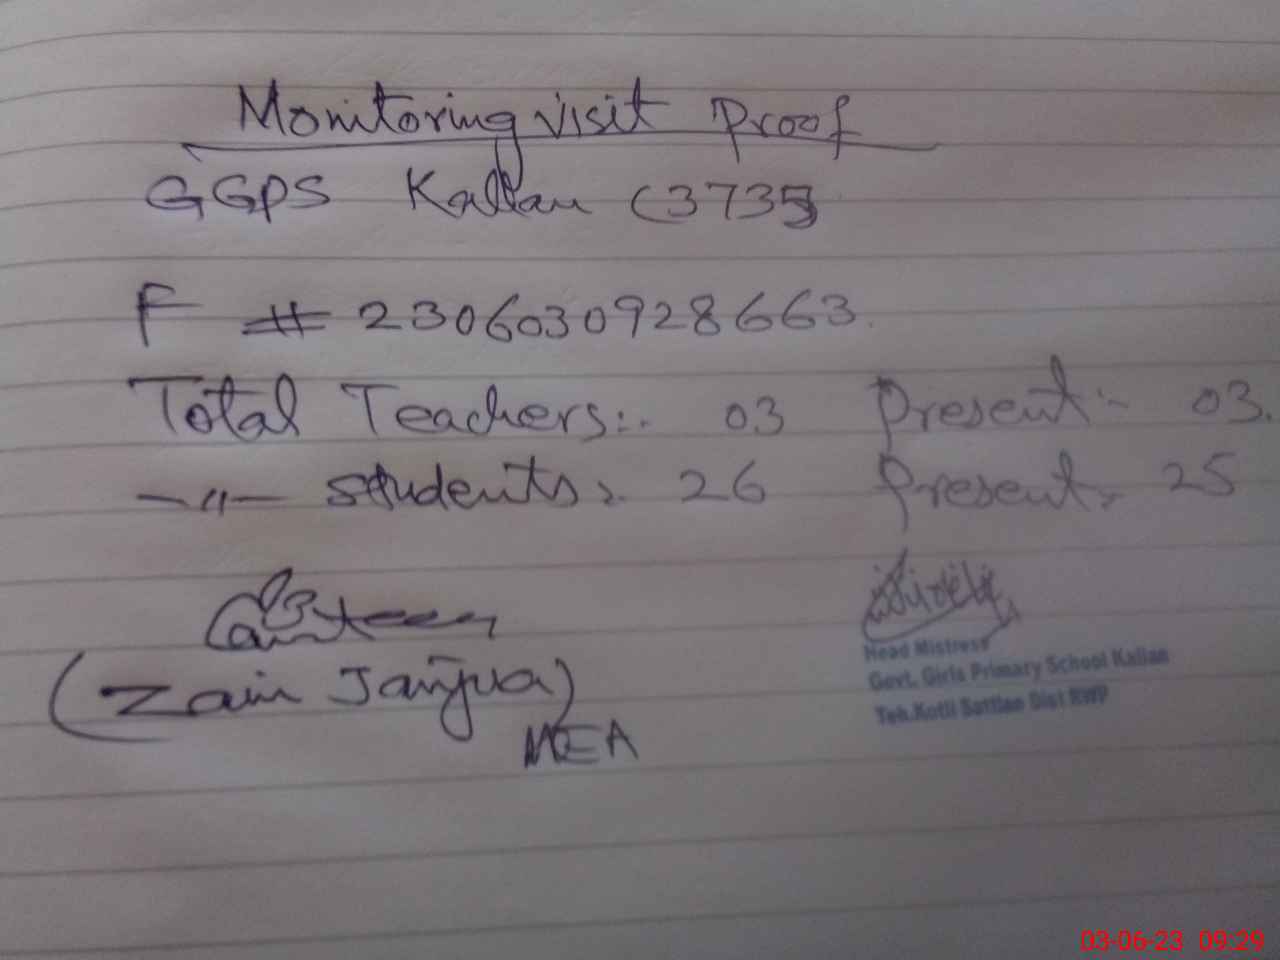 Monitoring visit Proof
GGPS Kallan (3735)
F # 2306030928663.
Total Teachers:- 03 Present:- 03.
-〃- students:- 26 Present:- 25
(Zain Janjua)
MEA
Head Mistress
Govt. Girls Primary School Kallan
Teh.Kotli Sattian Dist RWP
03-06-23 09:29